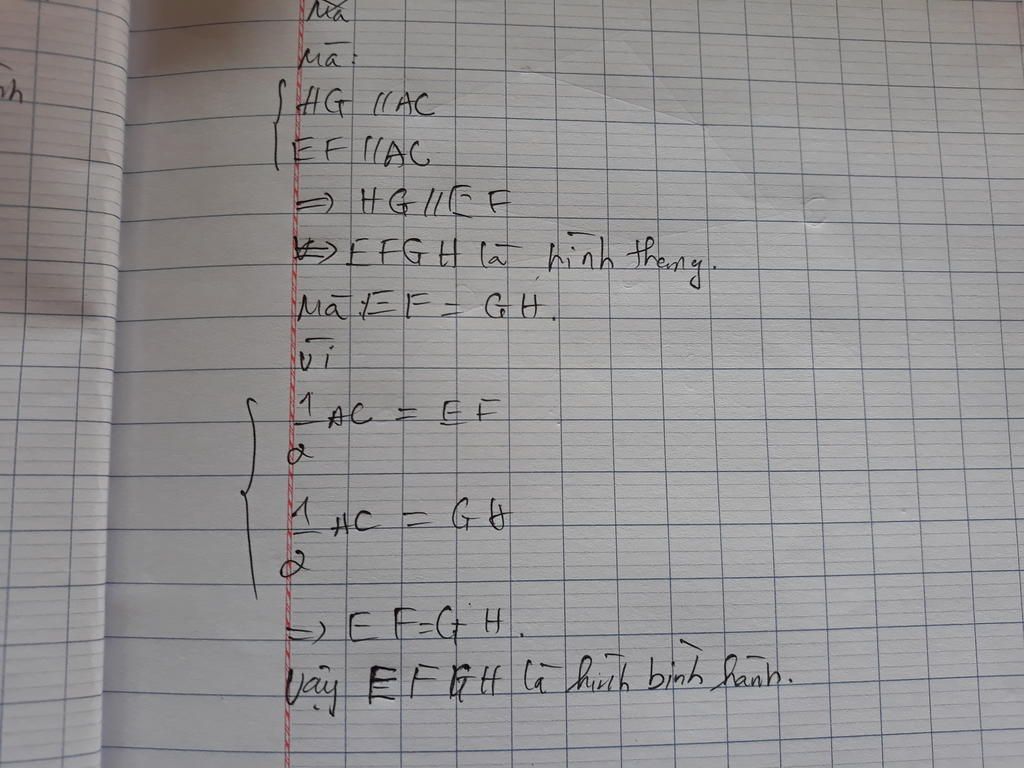 Mà
Mà:
HG // AC
EF // AC
=> HG // EF
<=> EFGH là hình thang.
Mà: EF = GH.
Vì
1/2 AC = EF
1/2 AC = GH
=> EF = GH.
Vậy EFGH là hình bình hành.